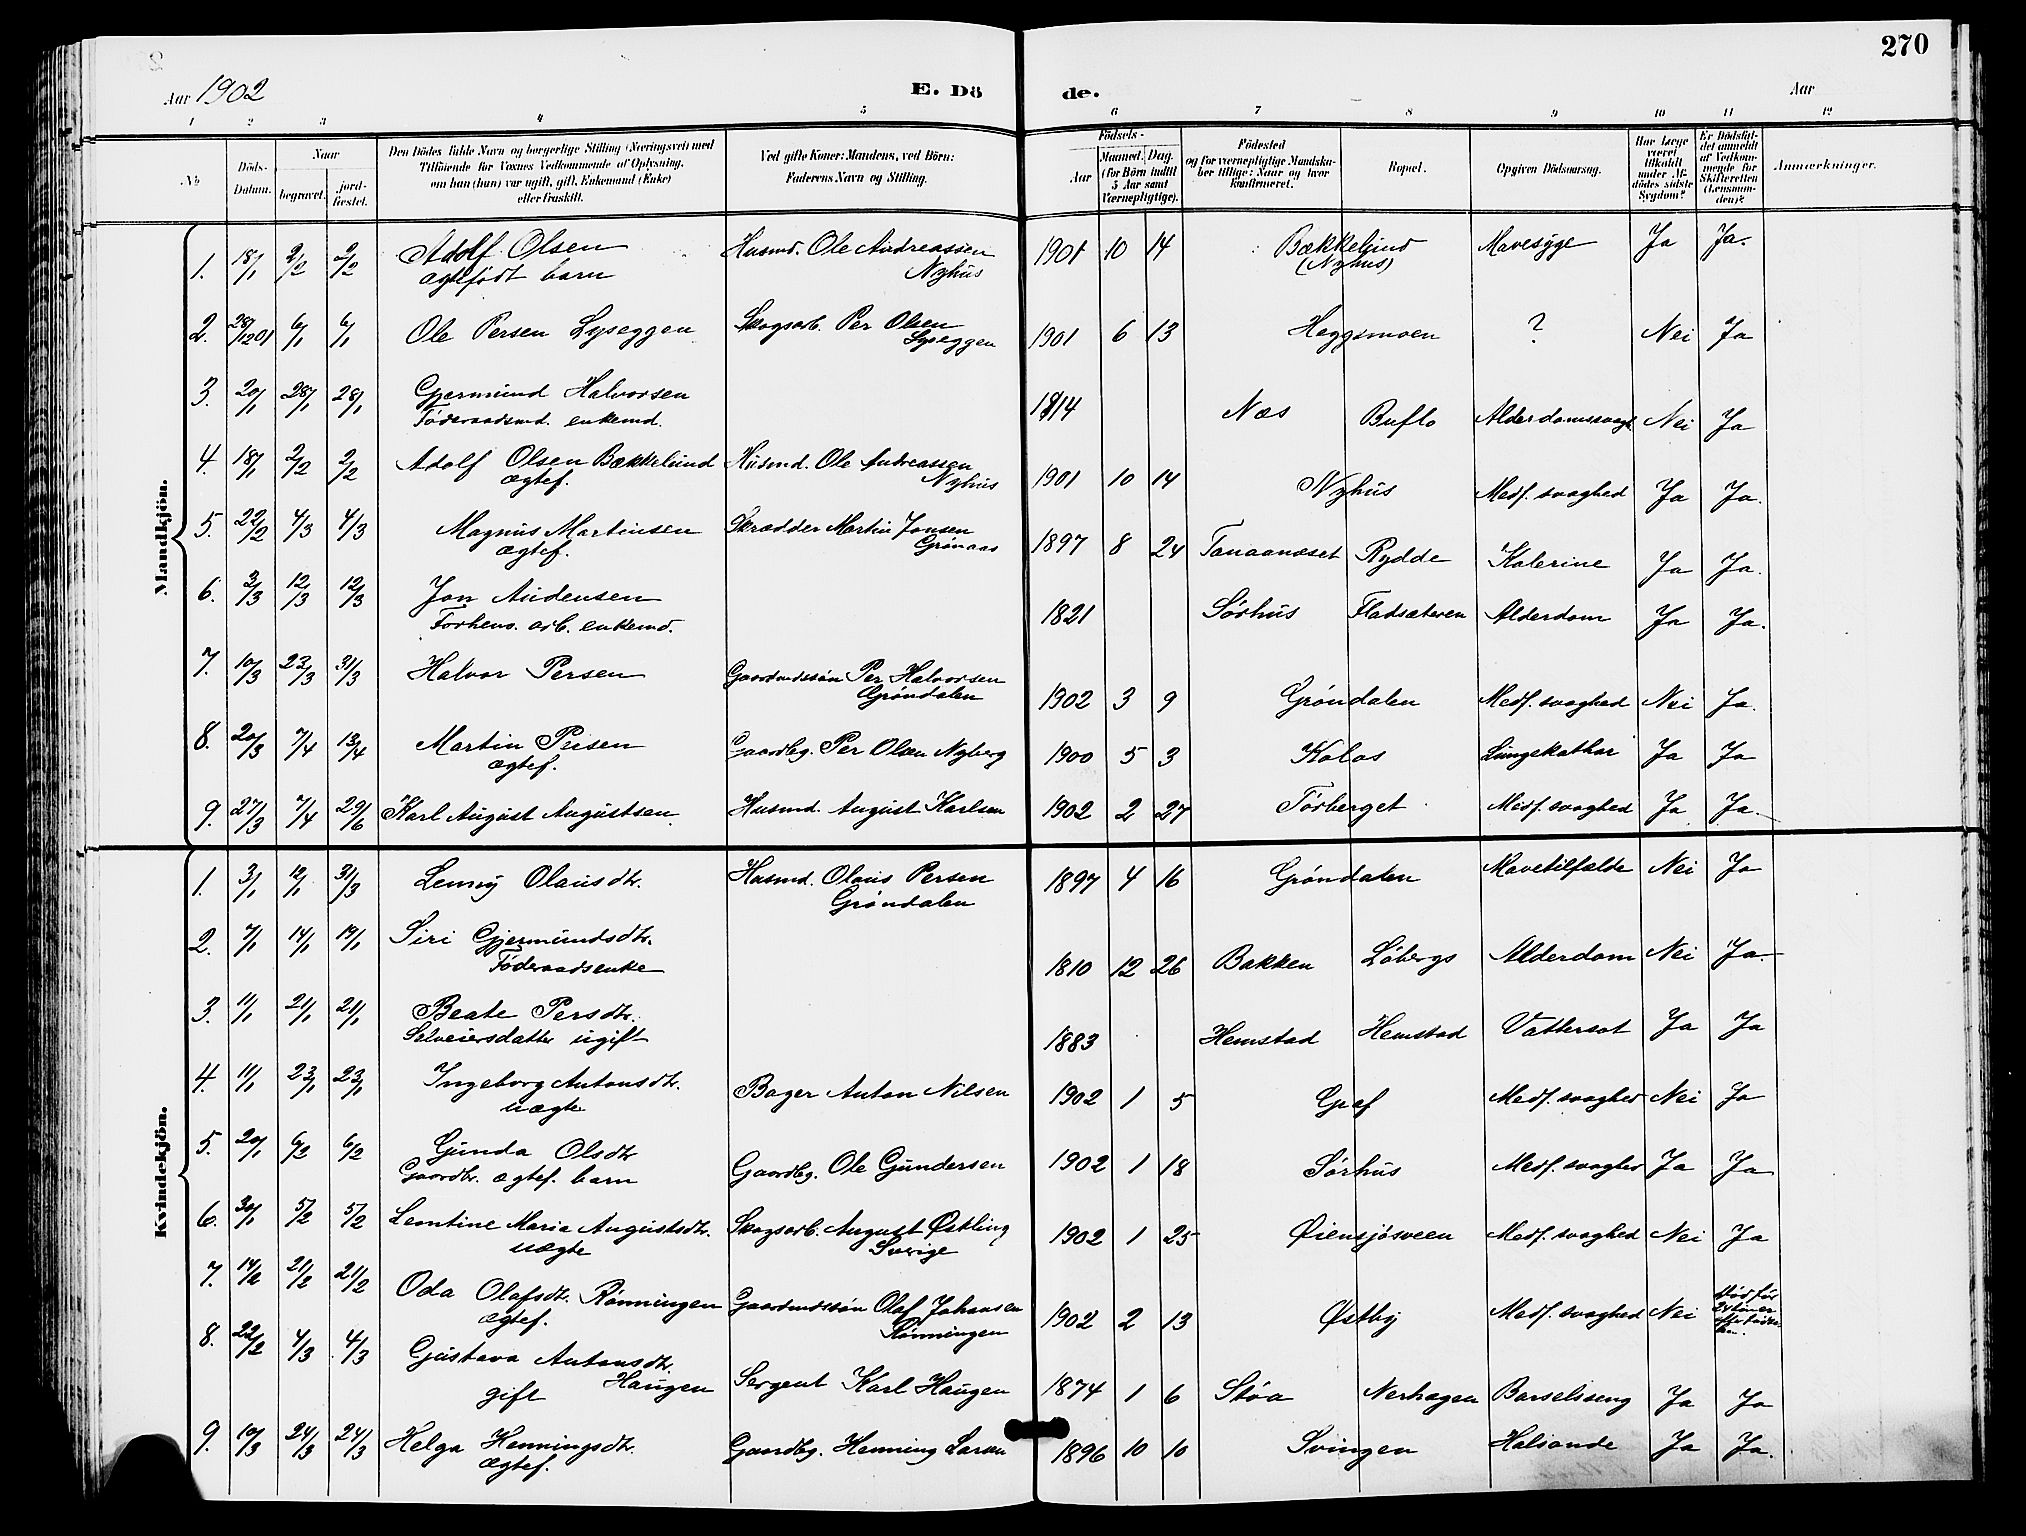 270
Aar 1902
E. Dö
de.
Aar
1 2 3 4 5 6 7 8 9 10 11 12
No
Döds-
Datum.
Naar
begravet.
jord-
fæstet.
Den Dödes fulde Navn og borgerlige Stilling (Næringsvei) med
Tilföiende for Voxnes Vedkommende af Oplysning,
om han (hun) var ugift, gift, Enkemand (Enke)
eller fraskilt.
Ved gifte Koner: Mandens, ved Börn:
Faderens Navn og Stilling.
Födsels-
Aar
Maaned. Dag.
(for Börn indtil
5 Aar samt
Værnepligtige).
Födested
og for værnepligtige Mandska-
ber tillige: Naar og hvor
konfirmeret.
Bopæl.
Opgiven Dödsaarsag.
Har Læge
været
tilkaldt
under Af-
dödes sidste
Sygdom?
Er Dödsfal-
det anmeldt
af Vedkom-
mende for
Skifteretten
(Lensman-
den)?
Anmærkninger.
Mandkjön.
1. 18/1 2/2 2/2 Adolf Olsen Husmd. Ole Andreassen 1901 10 14 Bækkelund Mavesyge Ja Ja.
ægtefødt barn Nyhus (Nyhus)
2. 28/12 01 6/1 6/1 Ole Persen Lyseggen Skogsarb. Per Olsen 1901 6 13 Heggsmoen ? Nei Ja
Lyseggen
3. 20/1 28/1 28/1 Gjermund Halvorsen 1814 Næs Buflo Alderdomssvagh Nei Ja
Føderaadsmd. enkemd.
4. 18/1 2/2 2/2 Adolf Olsen Bækkelund Husmd. Ole Andreassen 1901 10 14 Nyhus Medf. svaghed Ja Ja.
ægtef. Nyhus
5. 22/2 4/3 4/3 Magnus Martinsen Skrædder Martin Jonsen 1897 8 24 Tanaanæset Rydde Kolerine Ja Ja.
ægtef. Grønaas
6. 3/3 12/3 12/3 Jon Audensen 1821 Sørhus Fladsæteren Alderdom Ja Ja.
Forhenv. arb. enkemd.
7. 10/3 23/3 31/3 Halvor Persen Gaardmdssøn Per Halvorsen 1902 3 9 Grøndalen Medf. svaghed Nei Ja.
Grøndalen
8. 20/3 7/4 13/4 Martin Persen Gaardbg. Per Olsen Nyberg 1900 5 3 Kolos Lungekathar Ja Ja
ægtef.
9. 27/3 7/4 29/6 Karl August Augustsen Husmd. August Karlsen 1902 2 27 Tørberget Medf. svaghed Ja Ja.
Kvindekjön.
1. 3/1 12/1 31/3 Lenny Olausdtr. Husmd. Olaus Persen 1897 4 16 Grøndalen Mavetilfælde Nei Ja
Grøndalen
2. 7/1 14/1 14/1 Siri Gjermundsdtr. 1810 12 26 Bakken Løbergs Alderdom Nei Ja.
Føderaadsenke
3. 11/1 21/1 21/1 Beate Persdtr. 1883 Hemstad Hemstad Vattersot Ja Ja
Selveiersdatter ugift
4. 11/1 23/1 23/1 Ingeborg Antonsdtr. Bager Anton Nilsen 1902 1 5 Graf Medf. svaghed Nei Ja
uægte
5. 20/1 6/2 6/2 Gunda Olsdtr Gaardbg. Ole Gundersen 1902 1 18 Sørhus Medf. svaghed Ja Ja
Gaardbr. ægtef. barn
6. 30/1 5/2 5/2 Leontine Maria Augustsdtr. Skogsarb. August Østling 1902 1 25 Øiensjøsveen Medf. svaghed Nei Ja
uægte Sverige
7. 14/2 21/2 21/2 Oda Olafsdtr. Rønningen Gaardmdssøn Olaf Johansen 1902 2 13 Østby Medf. svaghed Nei død før 24 timer efter
ægtef. Rønningen
8. 22/2 4/3 4/3 Gustava Antonsdtr. Sergent Karl Haugen 1874 1 6 Støa Nerhagen Barselsseng Ja Ja
gift Haugen
9. 10/3 24/3 24/3 Helga Henningsdtr. Gaardbg. Henning Larsen 1896 10 10 Svingen Halsonde Ja Ja.
ægtef.